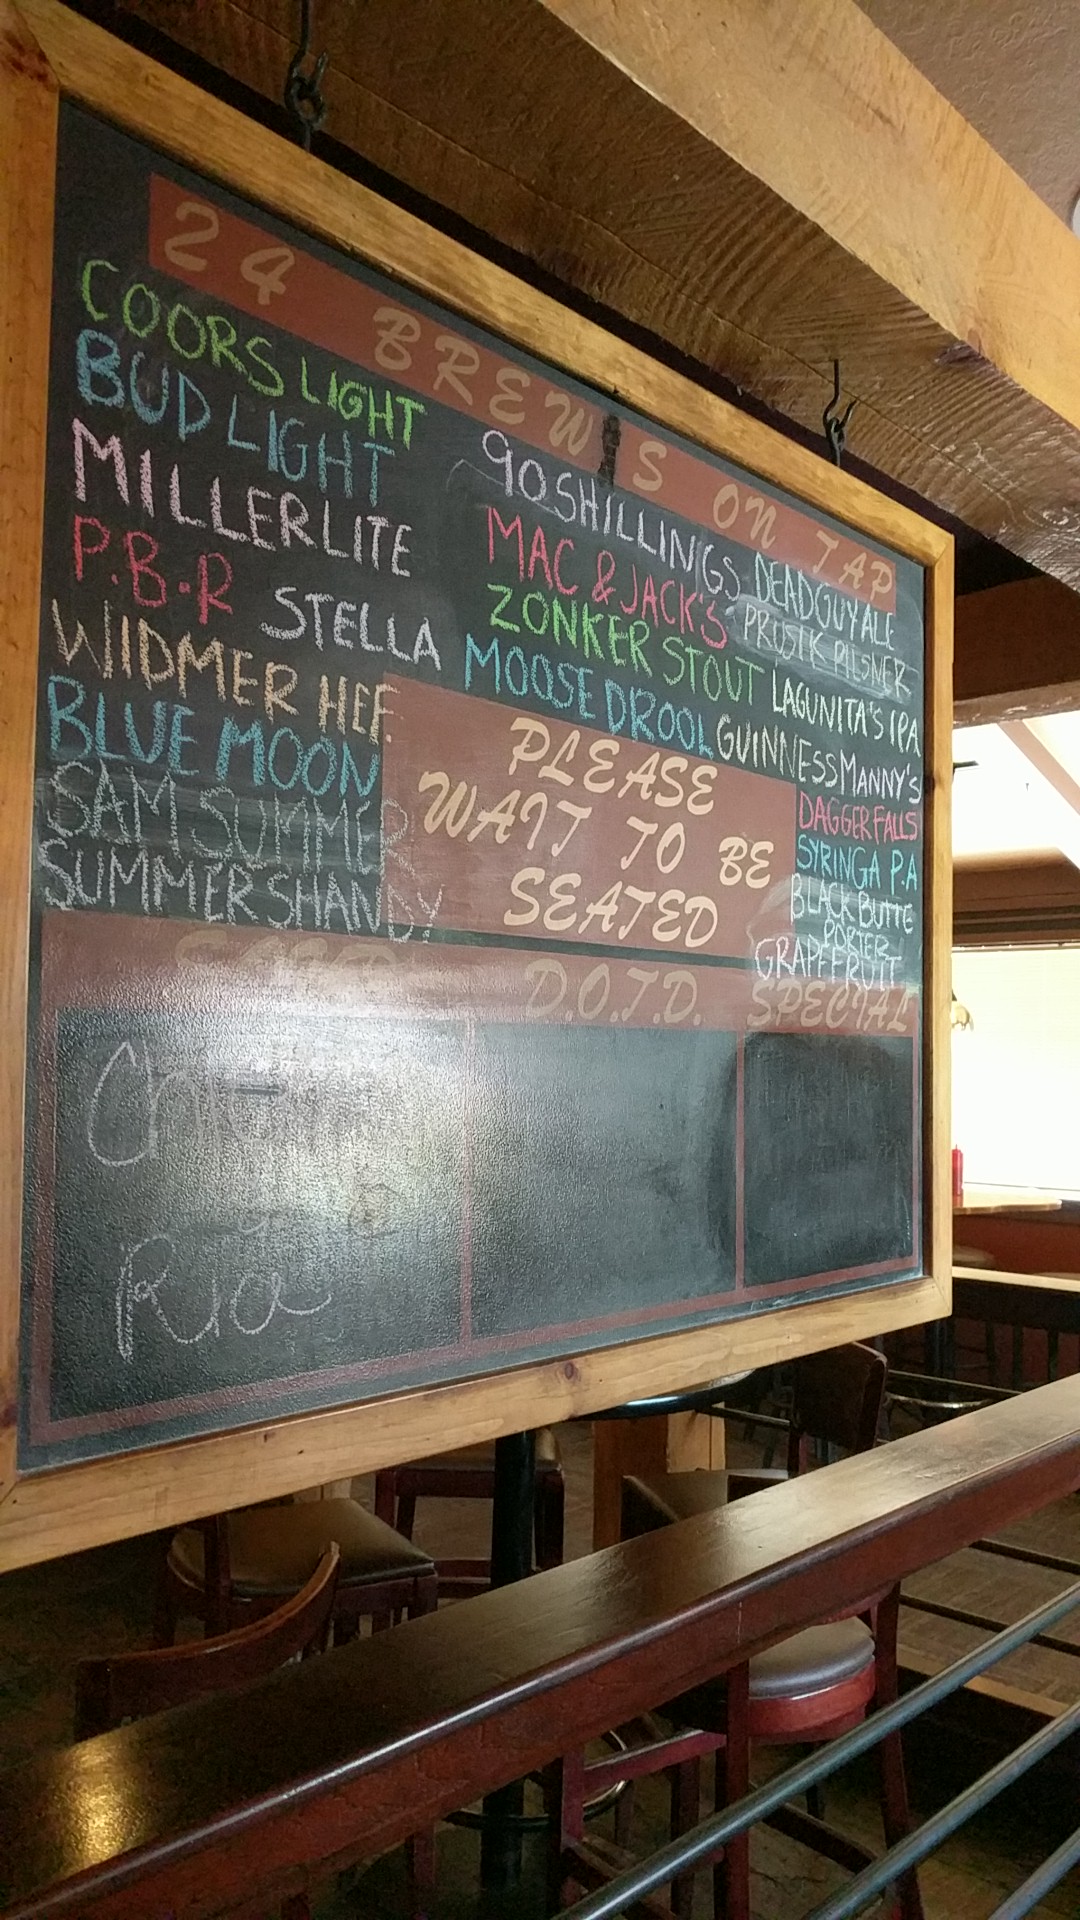 24 BREWS ON TAP
COORS LIGHT
BUD LIGHT
MILLER LITE
P.B.R STELLA
WIDMER HEF.
BLUE MOON
SAM SUMMER
SUMMER SHANDY
90 SHILLINGS
MAC & JACK'S
ZONKER STOUT
MOOSE DROOL
GUINNESS
DEADGUY ALE
PRUSIK PILSNER
LAGUNITA'S IPA
MANNY'S
DAGGER FALLS
SYRINGA P.A
BLACK BUTTE
PORTER
GRAPEFRUIT
PLEASE
WAIT TO BE
SEATED
D.O.T.D. SPECIAL